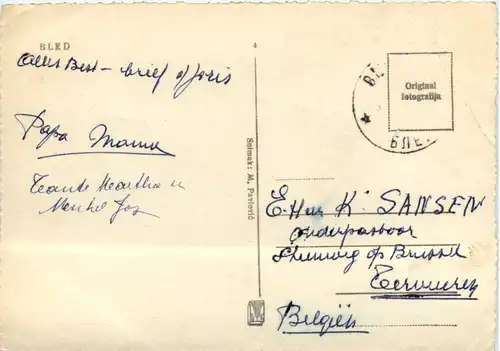 BLED
4
Alles Best - brief of Joris
Papa Mama
Tante Martha u
Snimak: M. Pavlović
Original
fotografija
БЛЕ
E.Har K. SANSEN
onderpastoor
Steenweg op Brussel
Tervueren
Belgiën